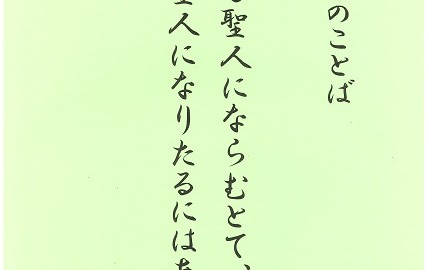 のことば
聖人にならむとて、
人になりたるには